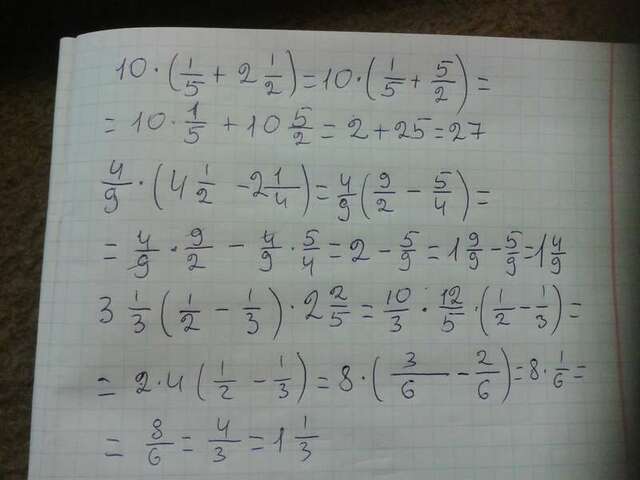 10·(1/5 + 2 1/2) = 10·(1/5 + 5/2) =
= 10·1/5 + 10 5/2 = 2 + 25 = 27
4/9·(4 1/2 - 2 1/4) = 4/9(9/2 - 5/4) =
= 4/9·9/2 - 4/9·5/4 = 2 - 5/9 = 1 9/9 - 5/9 = 1 4/9
3 1/3(1/2 - 1/3)·2 2/5 = 10/3·12/5·(1/2 - 1/3) =
= 2·4(1/2 - 1/3) = 8·(3/6 - 2/6) = 8·1/6 =
= 8/6 = 4/3 = 1 1/3